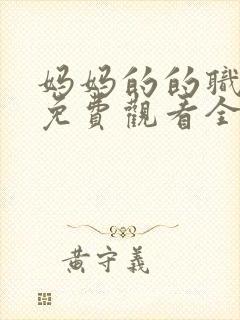 妈妈的的職
免費觀看全
黃守義